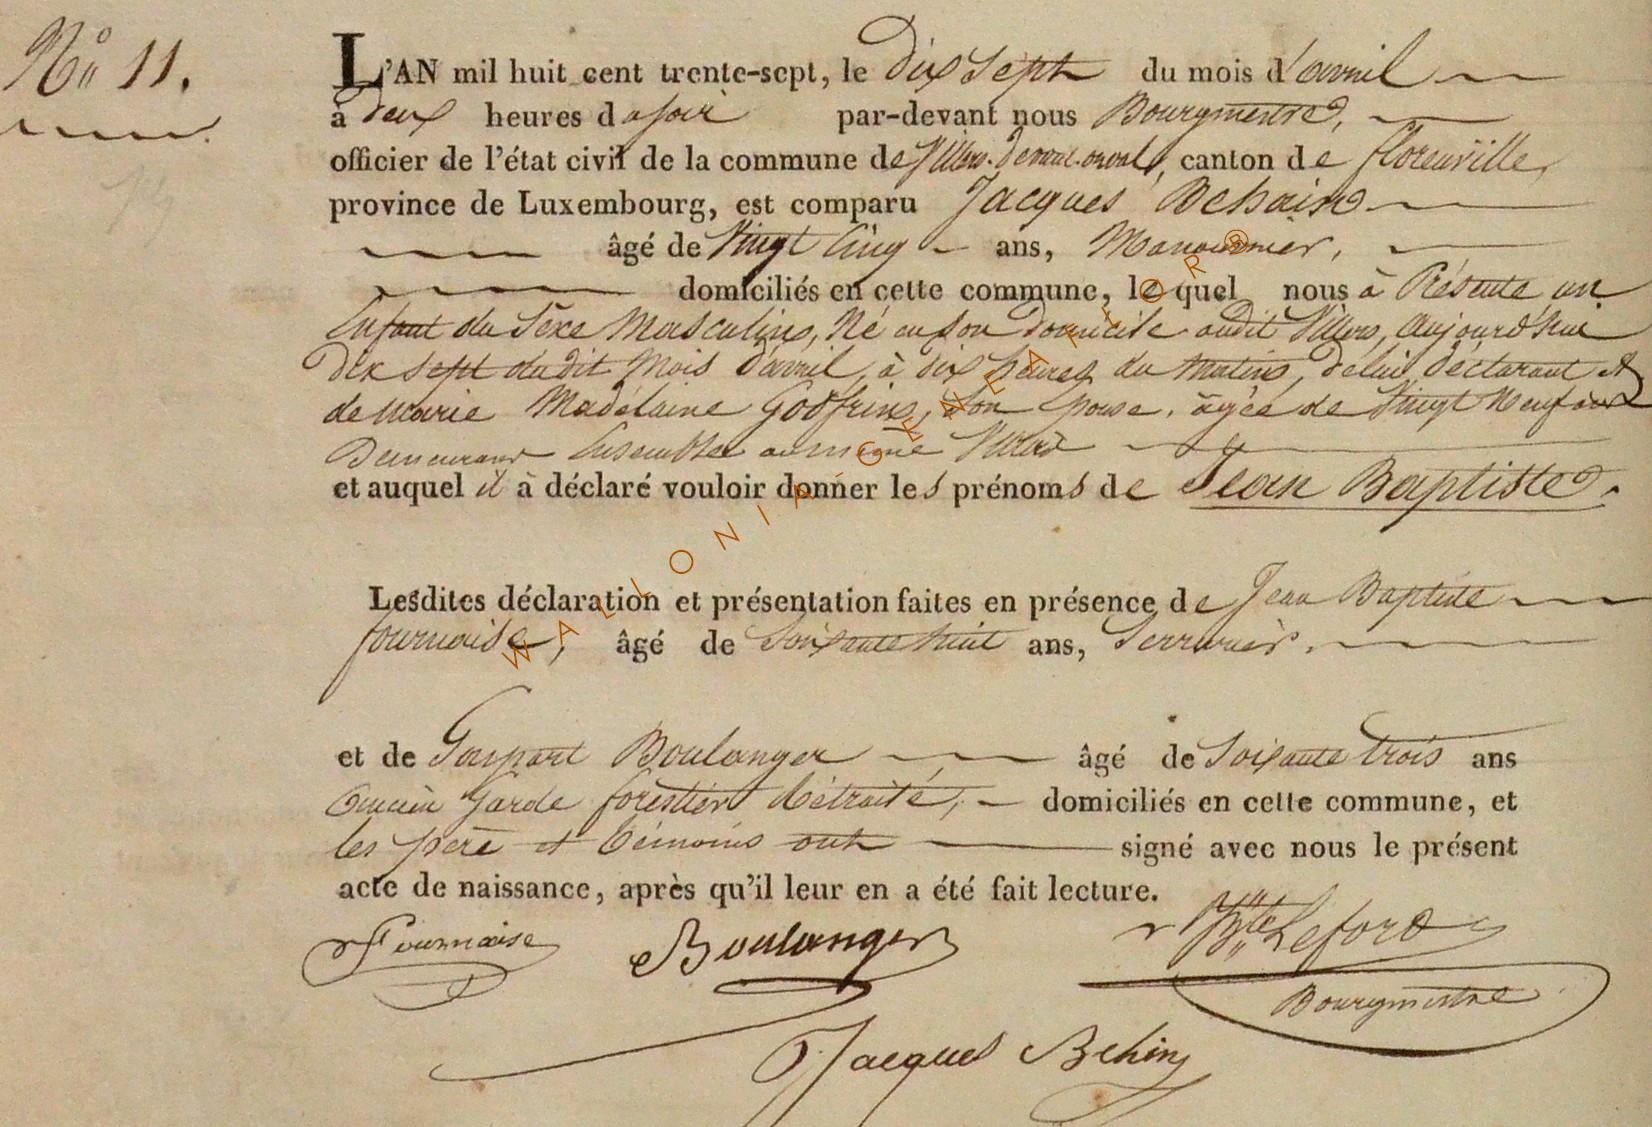 No 11.
L'AN mil huit cent trente-sept, le dix Sept du mois d'avril
à deux heures du soir par-devant nous Bourgmestre,
officier de l'état civil de la commune de Villers-devant-orval, canton de florenville,
province de Luxembourg, est comparu Jacques Behain
âgé de Vingt Cinq ans, Manouvrier,
domiciliés en cette commune, lequel nous à Présenté un
Enfant du Sèxe Masculin, Né en son Domicile audit Villers, Aujourd'hui
Dix sept dudit Mois d'avril, à dix heures du matin, de lui déclarant et
de marie Madélaine Godfrin, Son Epouse, âgée de Vingt Neuf ans
Demeurant Ensemble au même Villers
et auquel il à déclaré vouloir donner les prénoms de Jean Baptiste.
Lesdites déclaration et présentation faites en présence de Jean Baptiste
fournaise, âgé de Soixante huit ans, Serrurier,
et de Gaspart Boulanger âgé de Soixante trois ans
Ancien Garde forestier Rétraité, domiciliés en cette commune, et
les père et témoins ont signé avec nous le présent
acte de naissance, après qu'il leur en a été fait lecture.
Fournaise Boulanger Bte Lefort
Bourgmestre
Jacques Behin
WALLONIA GENEAFFORR®